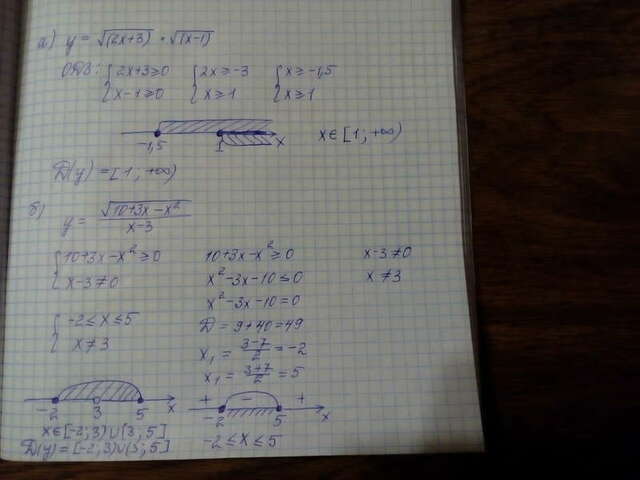 а) y = √(2x+3) · √(x-1)
ОДЗ: { 2x+3≥0 { 2x≥-3 { x≥-1,5
x-1≥0 x≥1 x≥1
-1,5 1 x x∈[1; +∞)
D(y)=[1; +∞)
б) y = √10+3x-x² / x-3
{ 10+3x-x²≥0 10+3x-x²≥0 x-3≠0
x-3≠0 x²-3x-10≤0 x≠3
x²-3x-10=0
{ -2≤x≤5 D = 9+40=49
x≠3 x₁ = 3-7/2 = -2
x₁ = 3+7/2 = 5
-2 3 5 x + - + -2 5 x
x∈[-2;3)∪(3;5] -2≤x≤5
D(y)=[-2;3)∪(3;5]